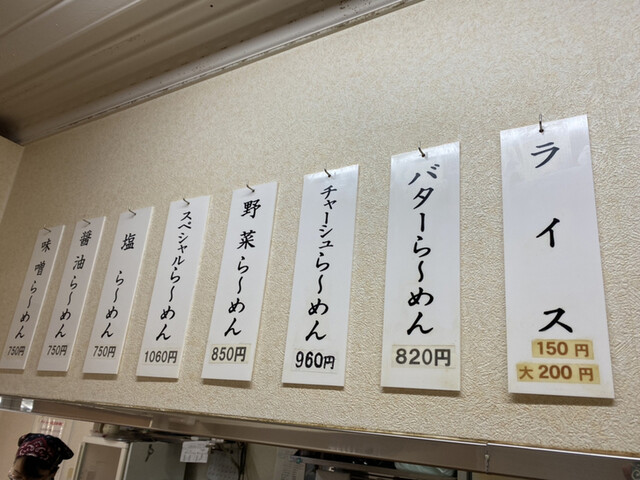 味噌ら〜めん
750円
醤油ら〜めん
750円
塩ら〜めん
750円
スペシャルら〜めん
1060円
野菜ら〜めん
850円
チャーシュら〜めん
960円
バターら〜めん
820円
ライス
150円
大200円